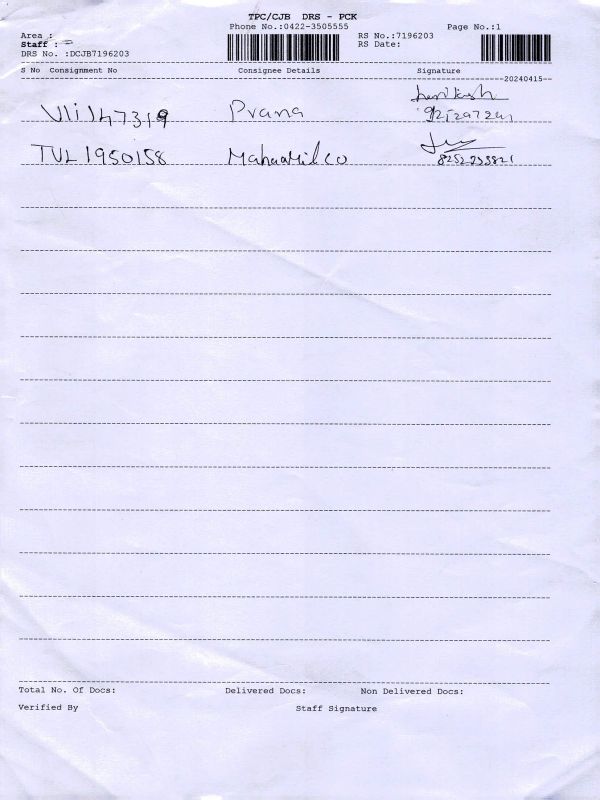 TPC/CJB DRS - PCK
Phone No.:0422-3505555 Page No.:1
Area :
RS No.:7196203
Staff :
RS Date:
DRS No. :DCJB7196203
S No Consignment No Consignee Details Signature
20240415
Prana
TUL1950158
8252233821
Total No. Of Docs: Delivered Docs: Non Delivered Docs:
Verified By Staff Signature